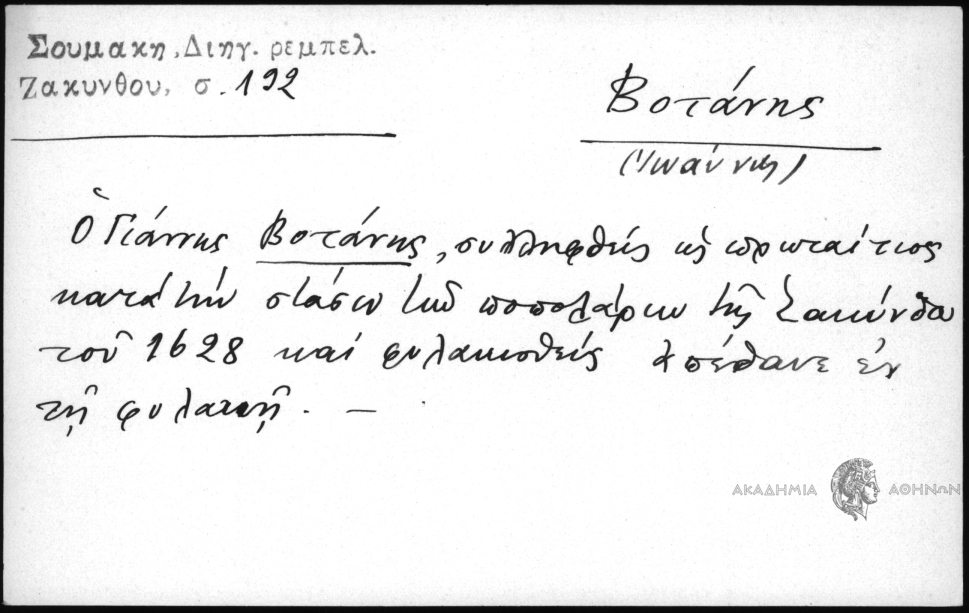 Σουμακη, Διηγ. ρεμπελ.
Ζακυνθου, σ. 192
Βοτάνης
(Ἰωάννης)
Ὁ Γιάννης Βοτάνης, συλληφθείς ὡς πρωταίτιος
κατά τήν στάσιν τῶν ποπολάρων τῆς Ζακύνθου
τοῦ 1628 καί φυλακισθείς ἀπέθανε ἐν
τῇ φυλακῇ. —
ΑΚΑΔΗΜΙΑ ΑΘΗΝΩΝ